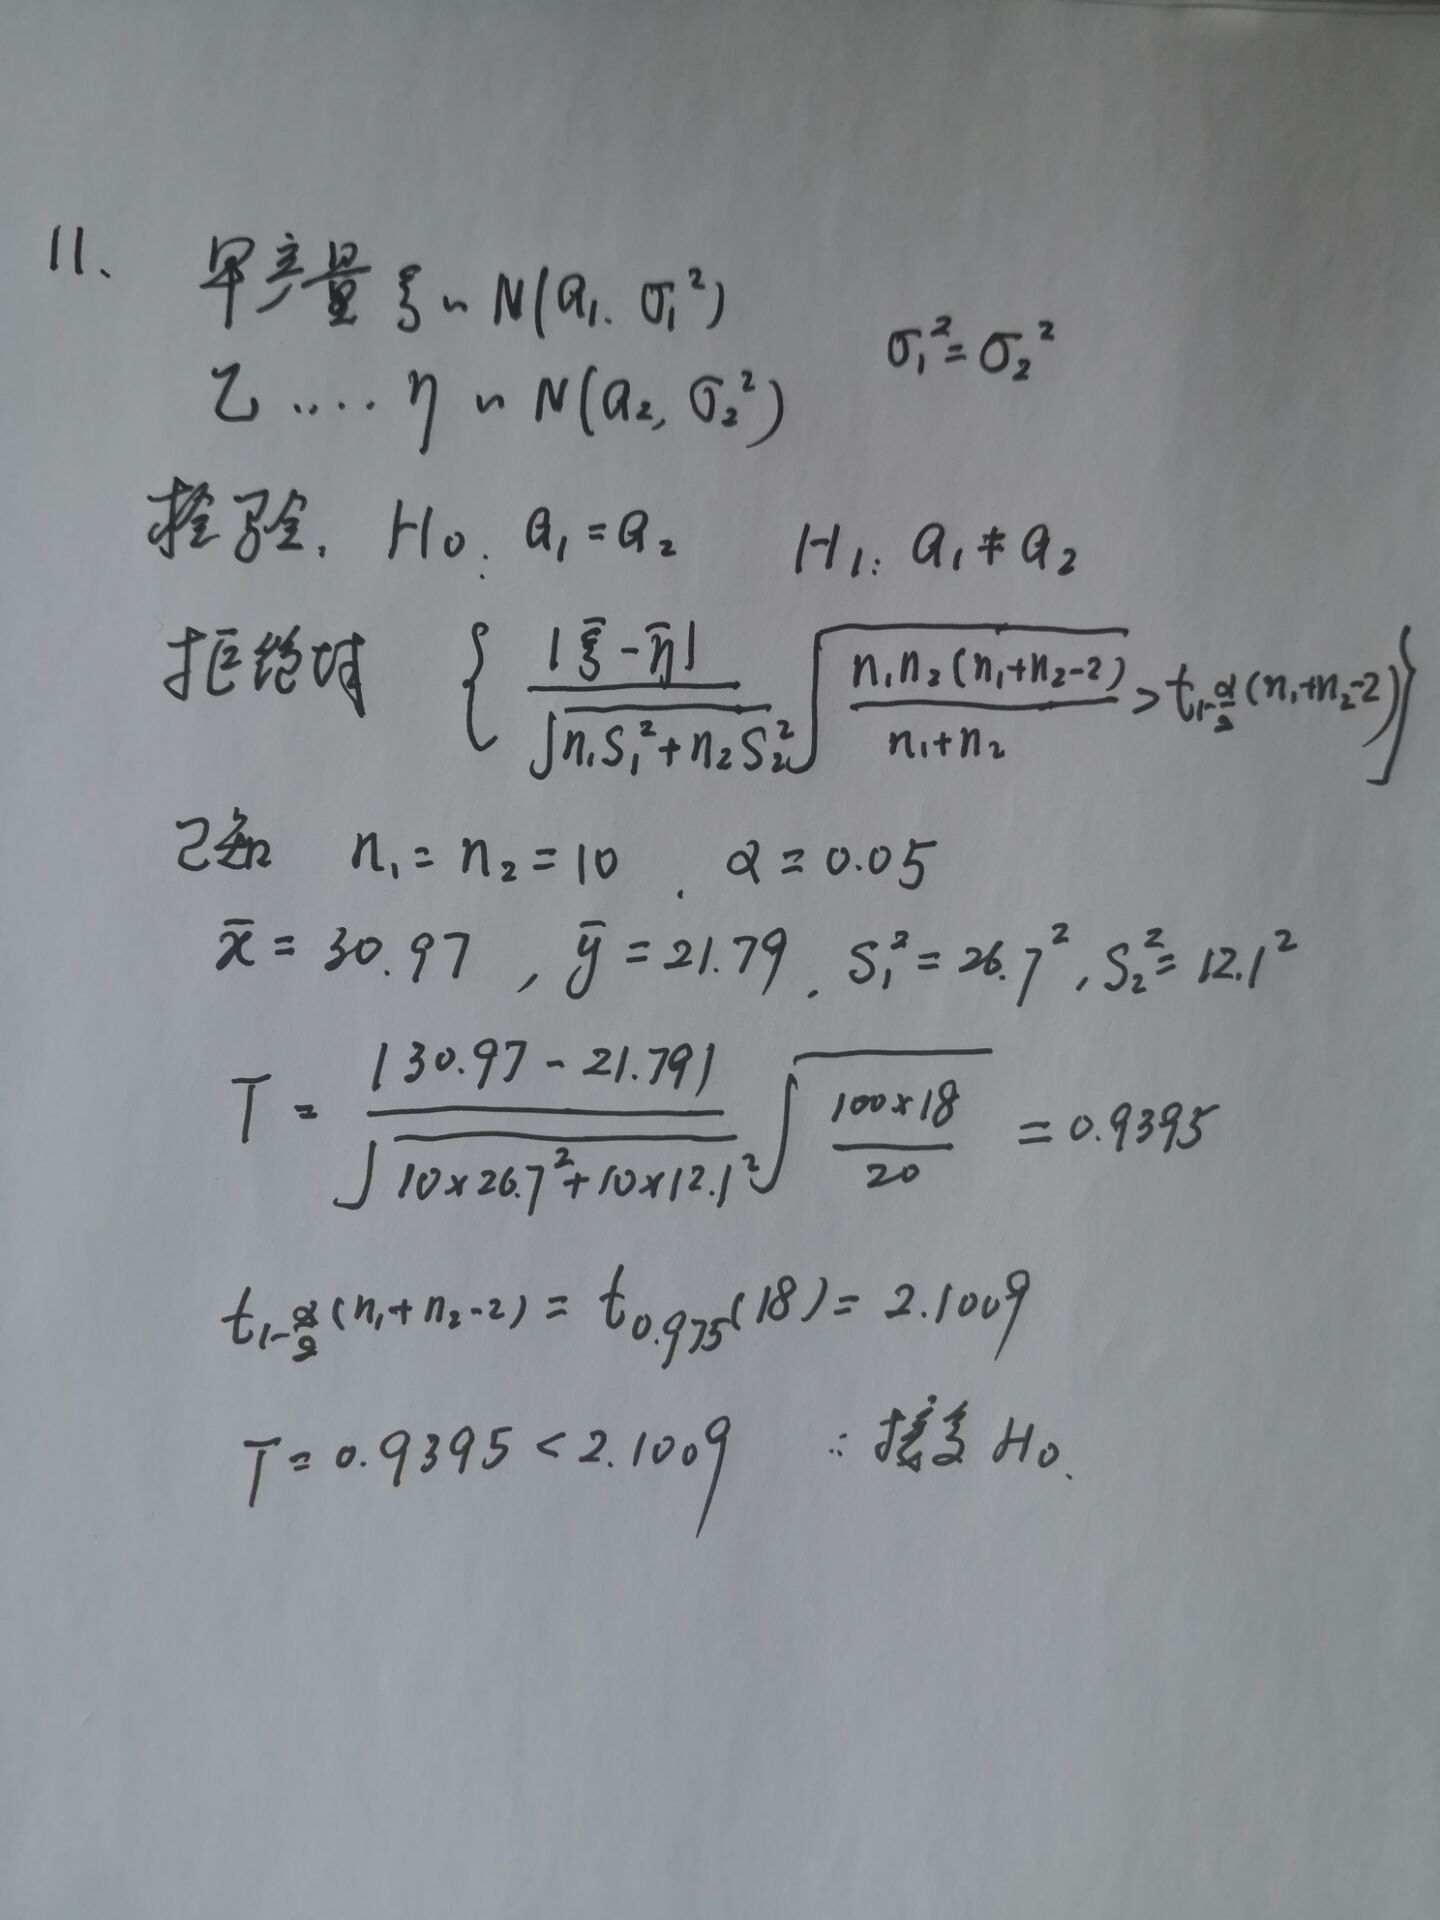 11、 甲产量 ξ ~ N(a₁, σ₁²)
σ₁² = σ₂²
乙 ‥‥ η ~ N(a₂, σ₂²)
检验, H₀: a₁ = a₂ H₁: a₁ ≠ a₂
拒绝域 { |ξ̄ - η̄| / √(n₁S₁² + n₂S₂²) √(n₁n₂(n₁+n₂-2) / (n₁+n₂)) > t₁₋α/₂ (n₁+n₂-2) }
已知 n₁ = n₂ = 10 , α = 0.05
x̄ = 30.97 , ȳ = 21.79 , S₁² = 26.7² , S₂² = 12.1²
T = |30.97 - 21.79| / √(10×26.7² + 10×12.1²) √(100×18 / 20) = 0.9395
t₁₋α/₂ (n₁+n₂-2) = t₀.₉₇₅(18) = 2.1009
T = 0.9395 < 2.1009 ∴ 接受 H₀.